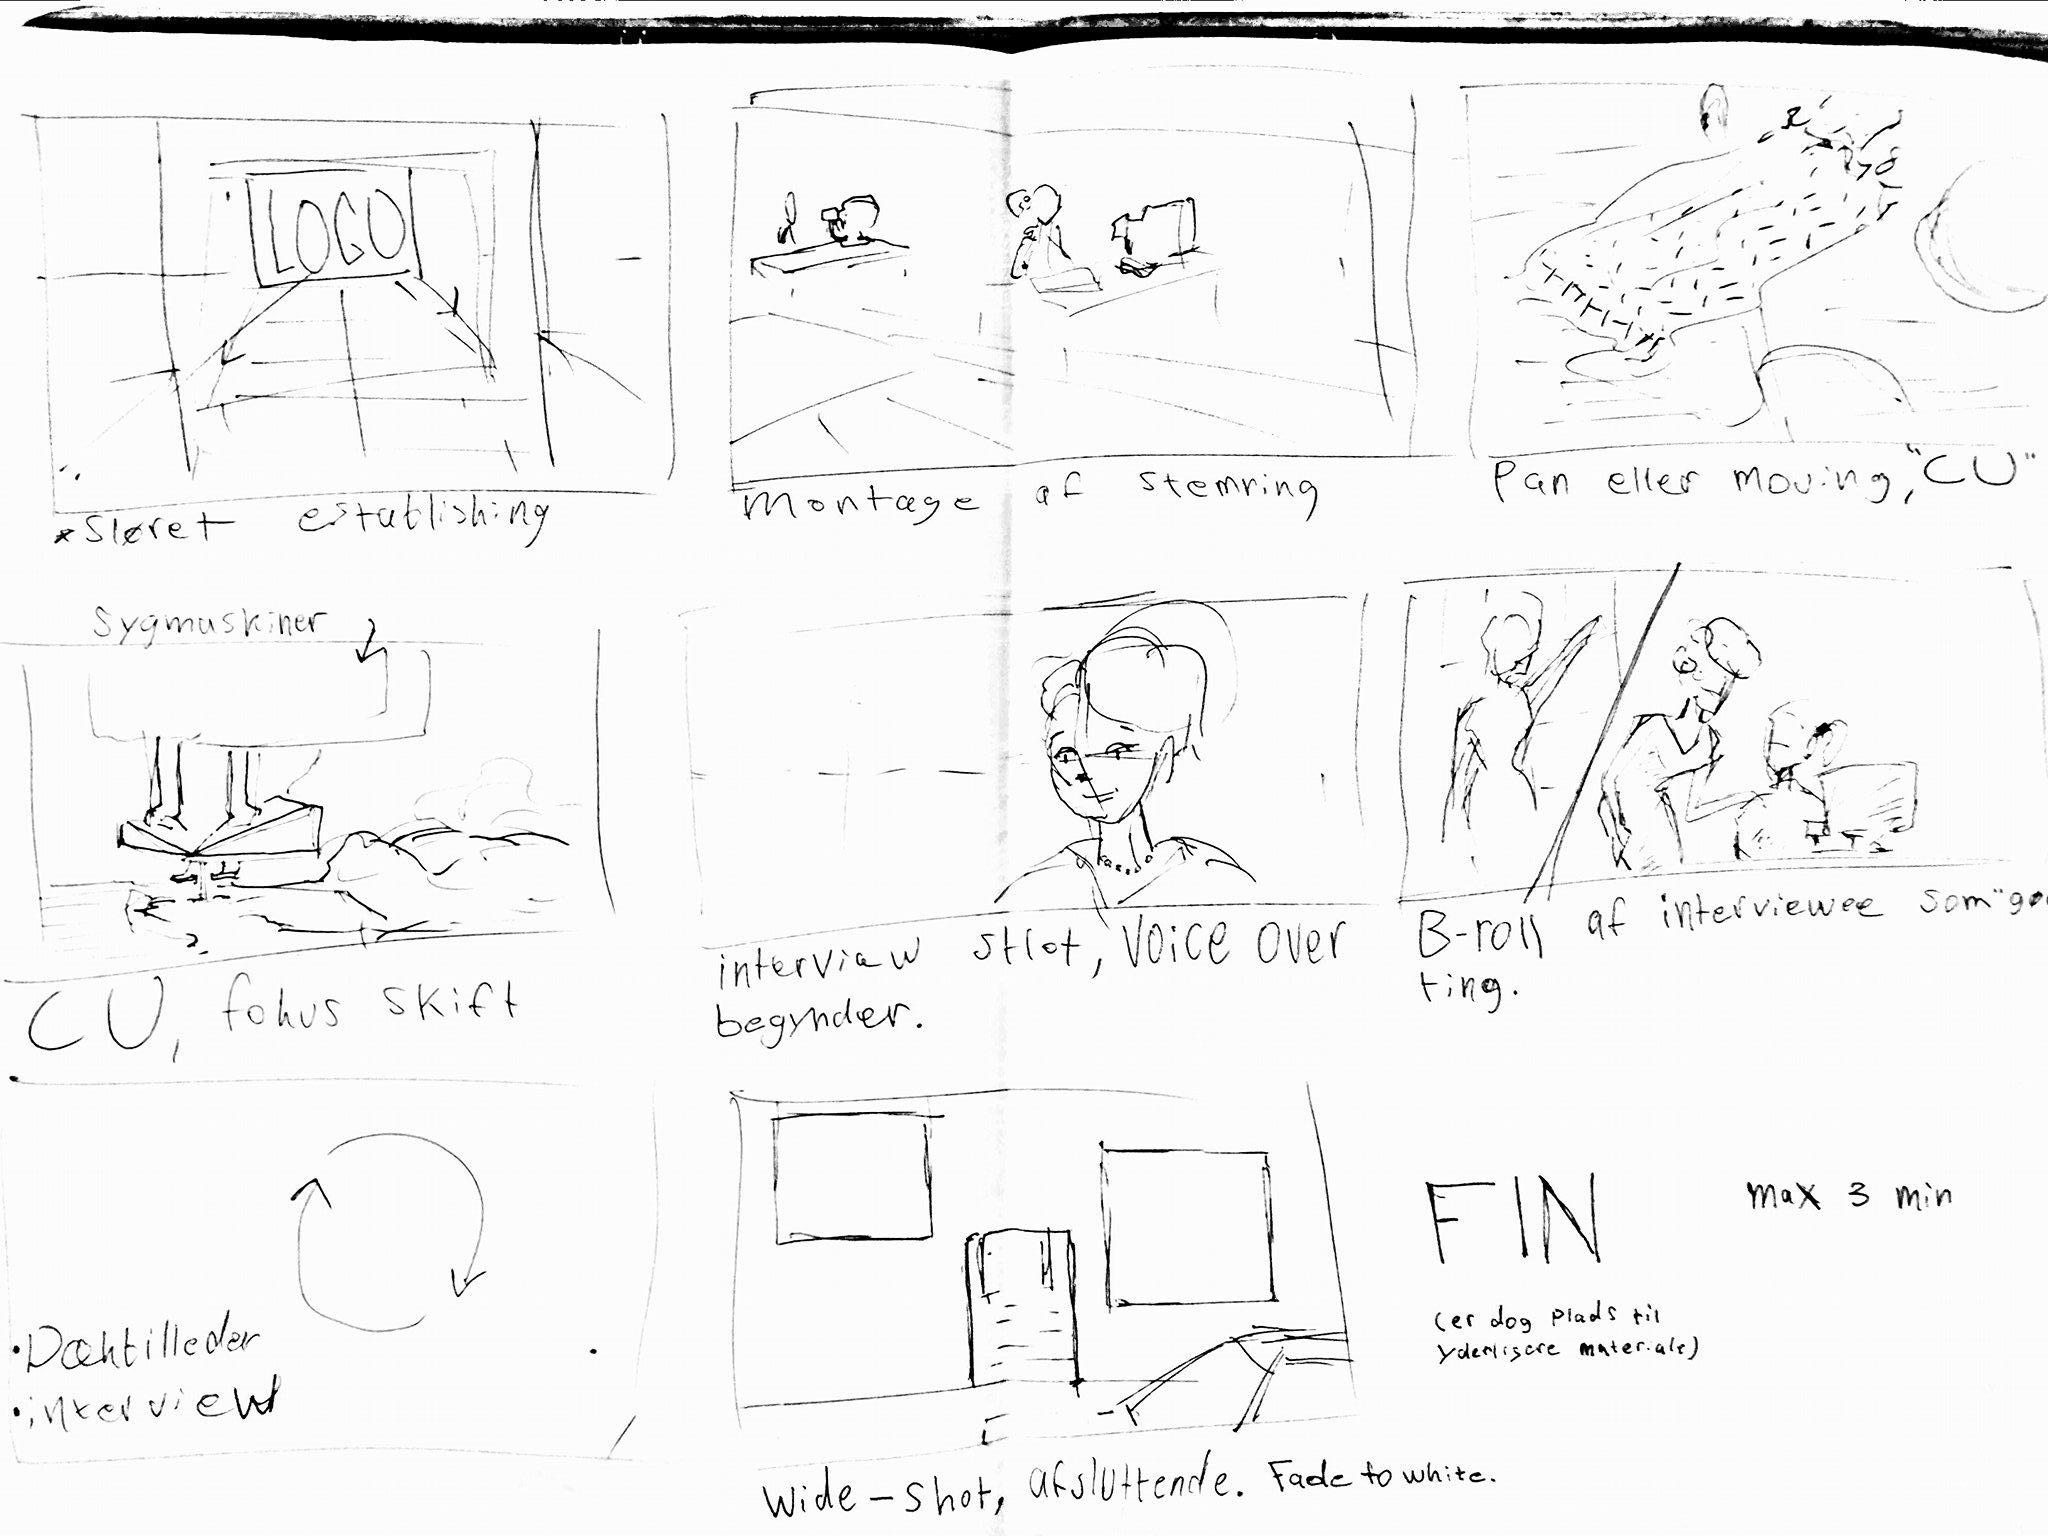 LOGO
*Sløret establishing
Montage af stemning
Pan eller moving, "CU"
Sygmaskiner
CU, fokus skift
interviaw shot, VOICE OVER
begynder.
B-roll af interviewee som
ting.
•Dækbilleder
•interview
Wide-shot, afsluttende. Fade to white.
FIN
max 3 min
(er dog plads til
yderligere materiale)